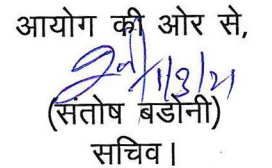 आयोग की ओर से,
1/3/21
(संतोष बडोनी)
सचिव।